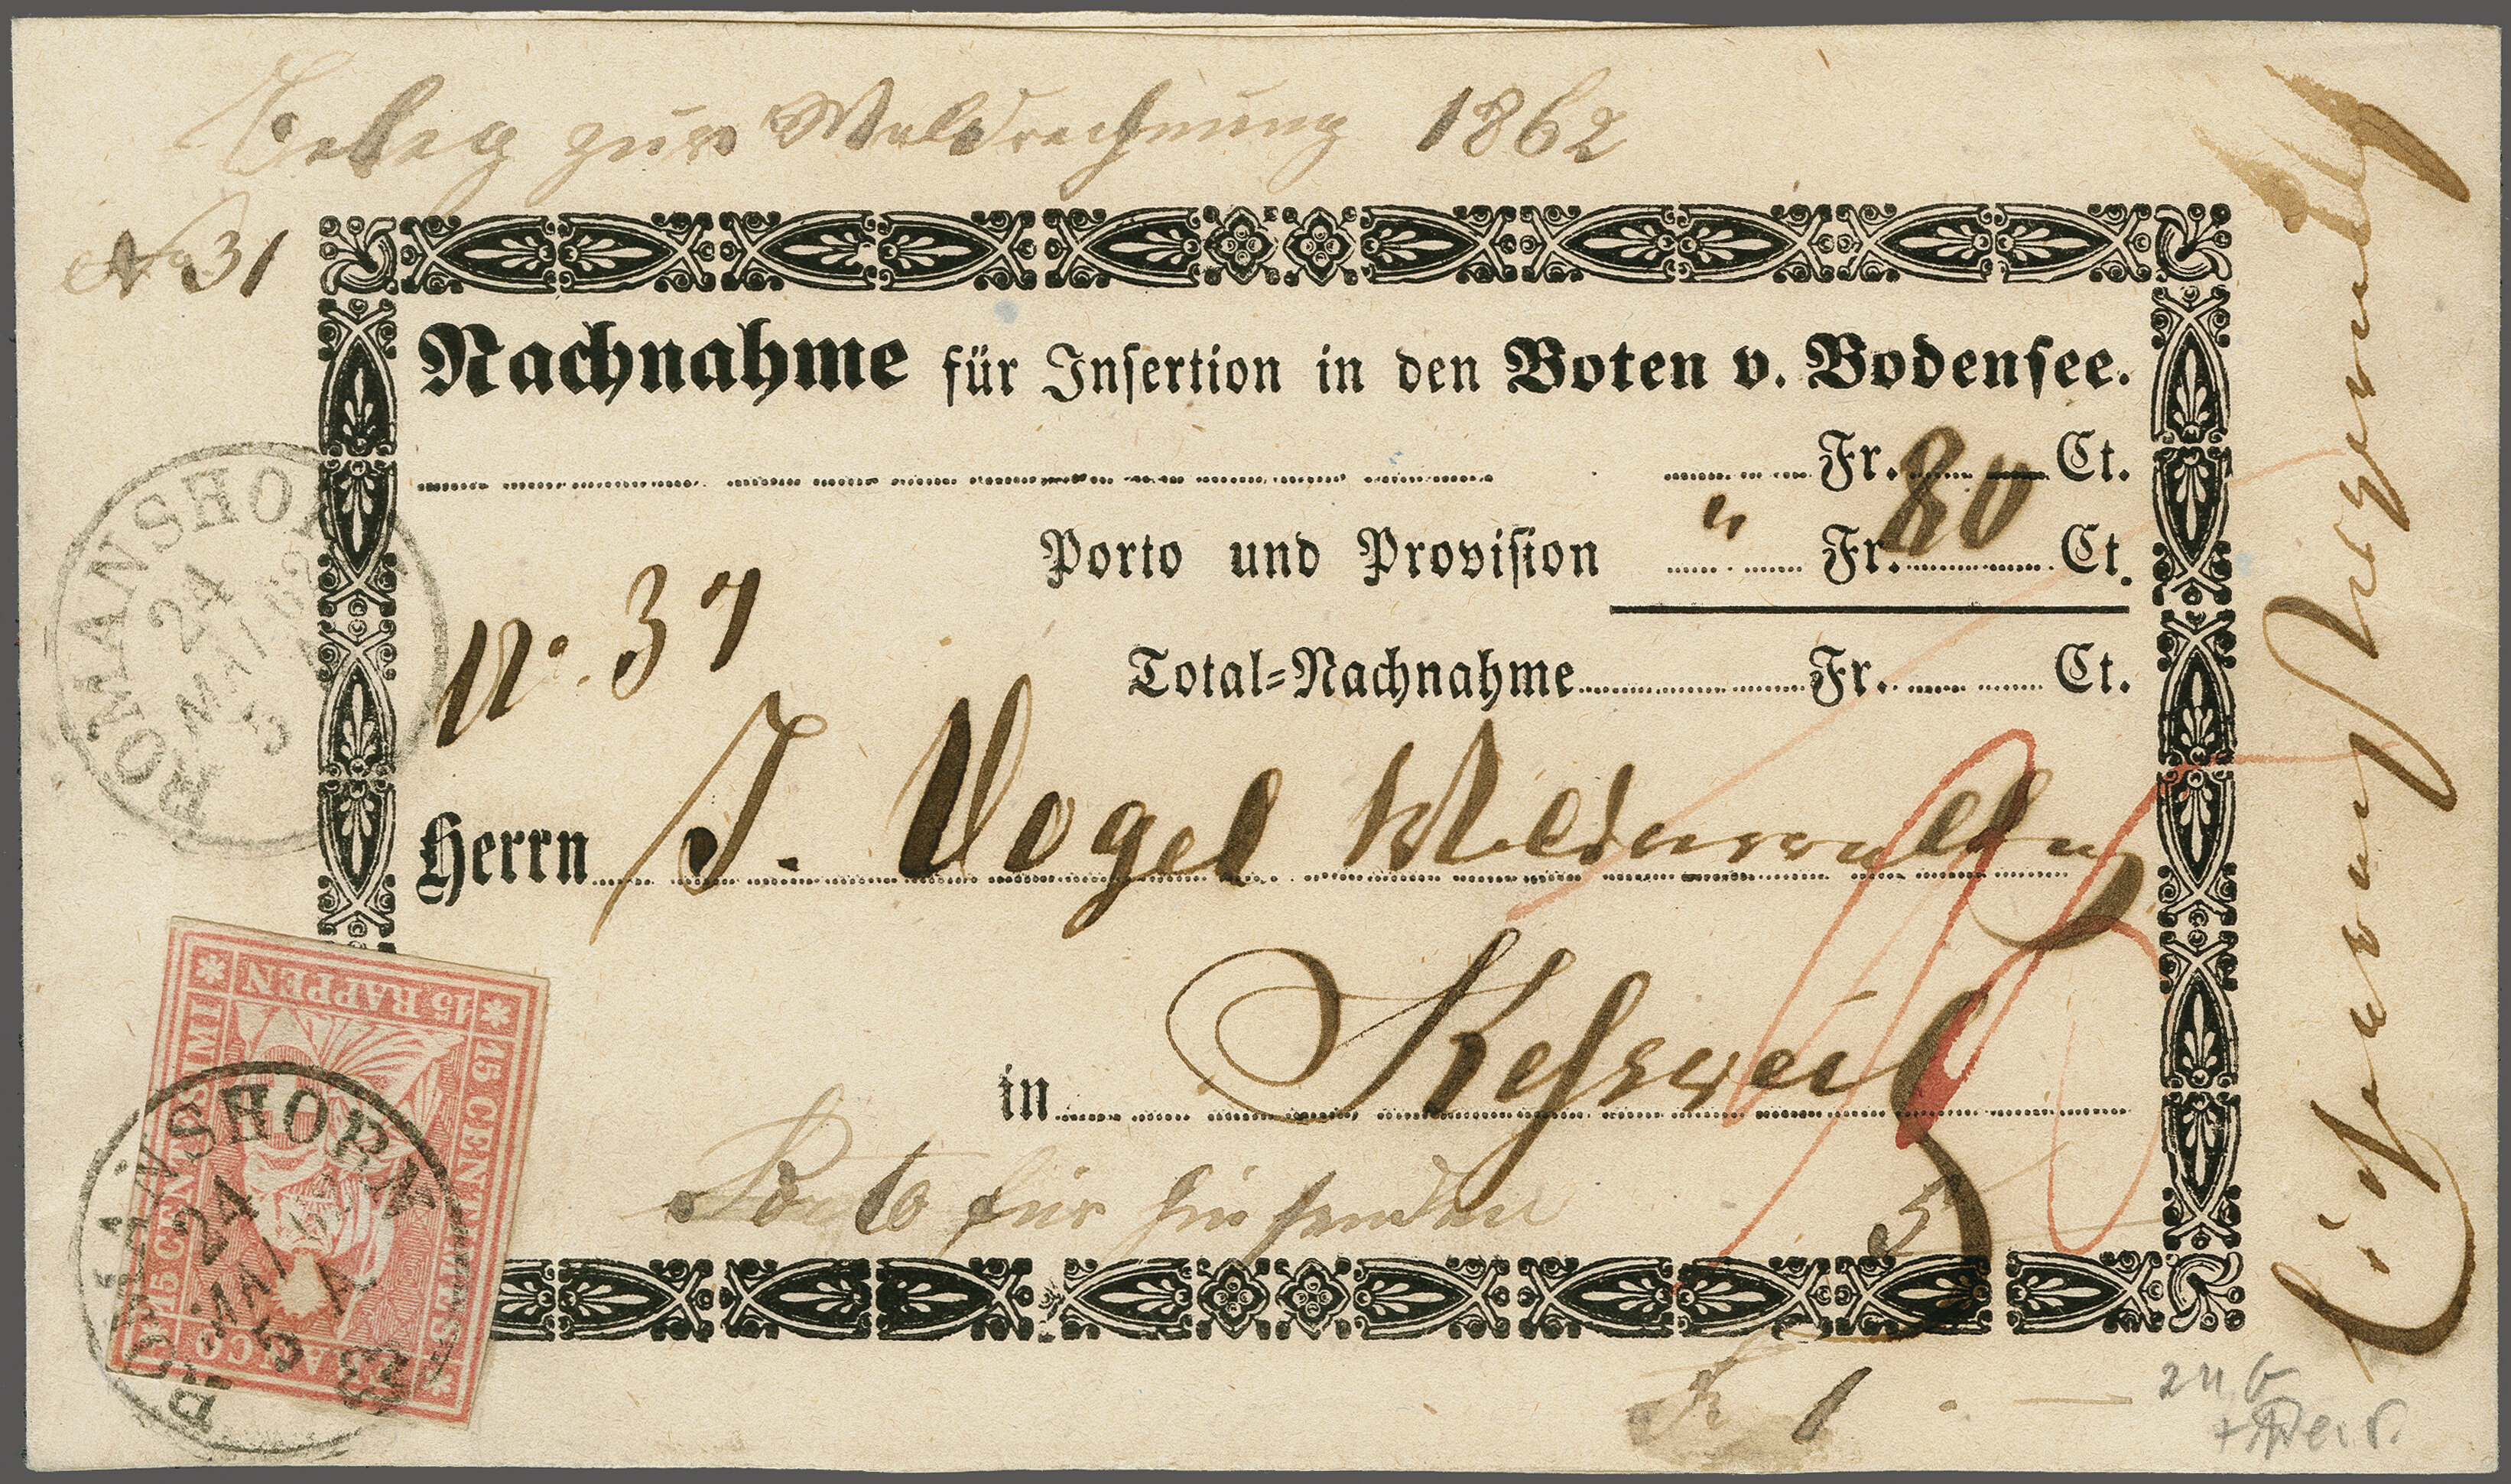 Beleg zur Waldrechnung 1862
No 31
Nachnahme für Insertion in den Boten v. Bodensee.
Fr. 80 Ct.
Porto und Provision " Fr. Ct.
No. 37
Total=Nachnahme Fr. Ct.
Herrn J. Vogel
in Kessweil
Porto für hin senden 5
Fr 1. —
ROMANSHORN
24
MAI 62
5 A
15 RAPPEN
15 CENTIMES
15 CENTESIMI
FRANCO
ROMANSHORN
24
MAI 62
5 A